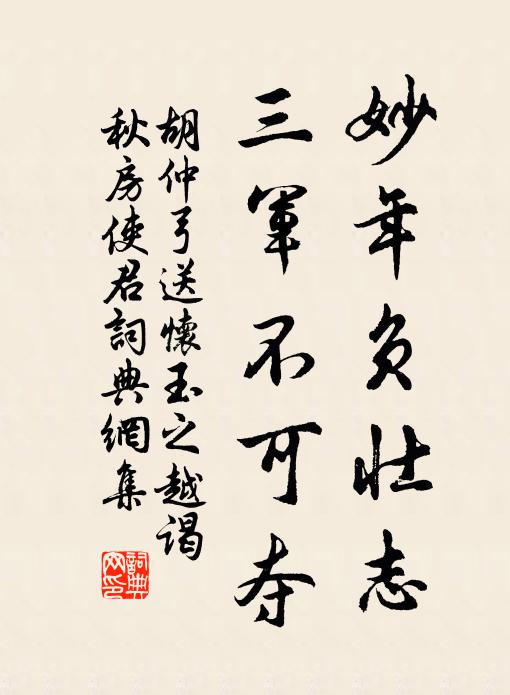 妙年负壮志
三军不可夺
胡仲弓送懷玉之越谒
秋房使君詞典網集
詞典
网印